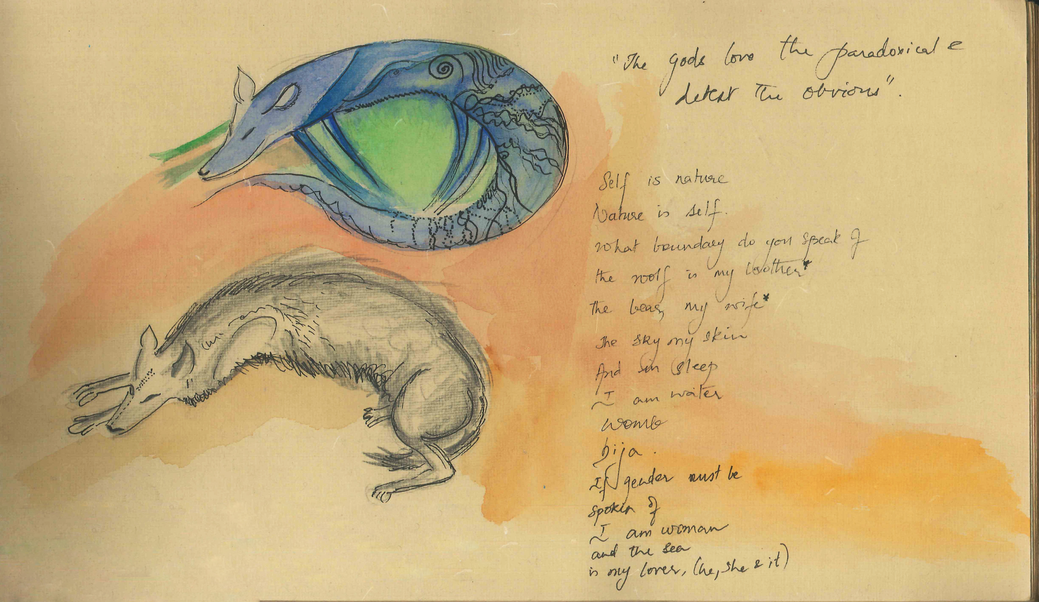 "The gods love the paradoxical &
detest the obvious".
Self is nature
Nature is self.
What boundary do you speak of
the wolf is my brother*
the bear, my wife*
The sky my skin
And in sleep
I am water
womb
bija.
If gender must be
spoken of
I am woman
and the sea
is my lover, (he, she & it)